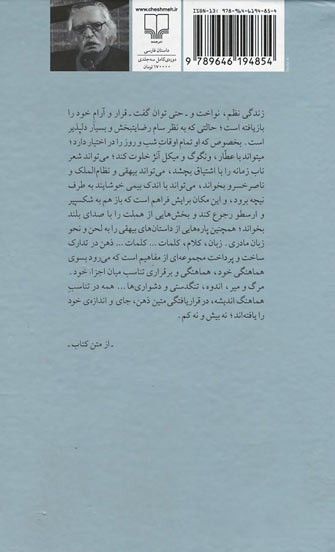 www.cheshmeh.ir
داستان فارسی
دوره‌ی کامل سه‌جلدی
۱۷۰۰۰۰ تومان
ISBN-13: 978-964-6194-85-4
9 789646 194854
زندگی نظم، نواخت و ـ حتی توان گفت ـ قرار و آرام خود را
بازیافته است؛ حالتی که به نظر سام رضایتبخش و بسیار دلپذیر
است. بخصوص که او تمام اوقات شب و روز را در اختیار دارد؛
میتواند با عطّار، ونگوگ و میکل آنژ خلوت کند؛ می‌تواند شعر
ناب زمانه را با اشتیاق بچشد، می‌تواند بیهقی و نظام‌الملک و
ناصرخسرو بخواند، می‌تواند با اندک بیمی خوشایند به طرف
نیچه برود، و این مکان برایش فراهم است که باز هم به شکسپیر
و ارسطو رجوع کند و بخش‌هایی از هملت را با صدای بلند
بخواند؛ همچنین پاره‌هایی از داستان‌های بیهقی را به لحن و نحو
زبان مادری. زبان، کلام، کلمات... کلمات... ذهن در تدارک
ساخت و پرداخت مجموعه‌ای از مفاهیم است که می‌رود بسوی
هماهنگی خود، هماهنگی و برقراری تناسب میان اجزاء خود.
مرگ و میر، اندوه، تنگدستی و دشواری‌ها... همه در تناسب
هماهنگ اندیشه، در قراریافتگی متین ذهن، جای و اندازه‌ی خود
را یافته‌اند؛ نه بیش و نه کم.
ـ از متن کتاب ـ